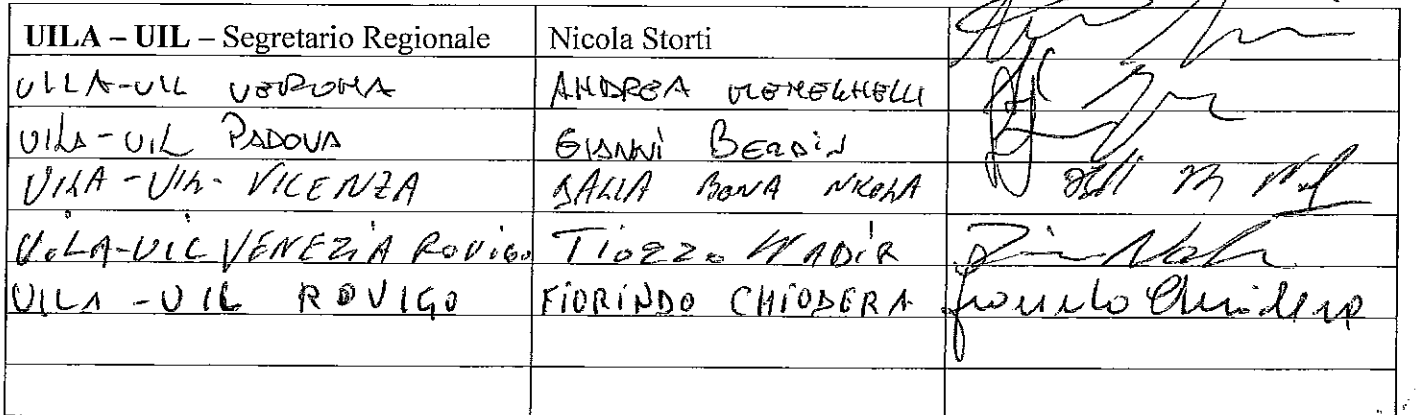 UILA – UIL – Segretario Regionale Nicola Storti
UILA-UIL VERONA ANDREA MENEGHELLI
UILA-UIL PADOVA GIANNI BERDIN
UILA-UIL-VICENZA DALLA BONA NICOLA
UILA-UIL VENEZIA ROVIGO TIOZZO NADIR
UILA-UIL ROVIGO FIORINDO CHIODERA Fiorindo Chiodera